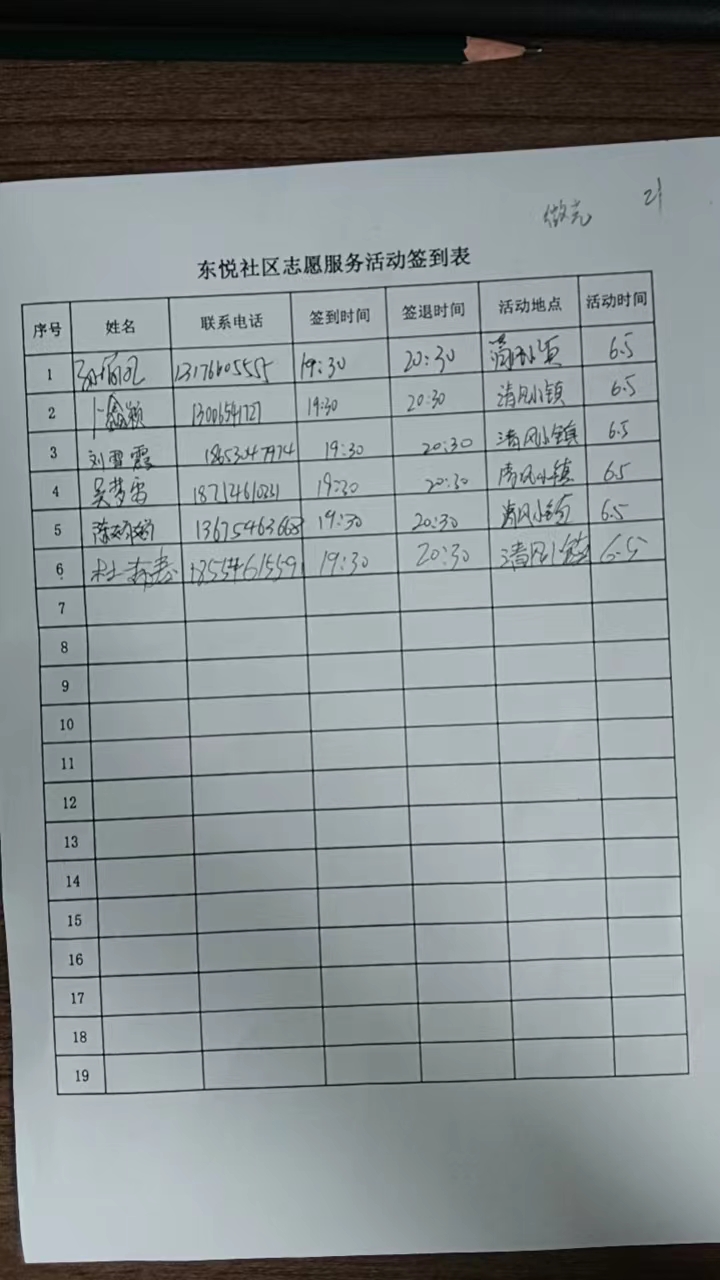 做完 21
东悦社区志愿服务活动签到表
序号 姓名 联系电话 签到时间 签退时间 活动地点 活动时间
1 19:30 20:30 6.5
2 卜鑫颖 13006541727 19:30 20:30 清风小镇 6.5
3 刘雪霞 1865347974 19:30 20:30 清风小镇 6.5
4 吴梦雷 19:30 20:30 清风小镇 6.5
5 13675463668 19:30 20:30 清风小镇 6.5
6 杜 18554615591 19:30 20:30 清风小镇 6.5
7
8
9
10
11
12
13
14
15
16
17
18
19